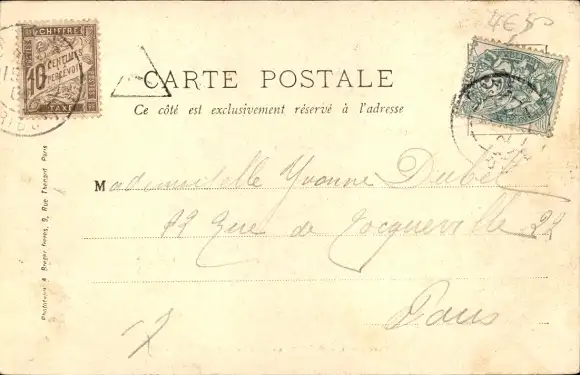 4€50
CHIFFRE
10
CENTIMES
A PERCEVOIR
TAXE
CARTE POSTALE
Ce côté est exclusivement réservé à l'adresse
Mademoiselle Yvonne Dubet
12 Rue de Tocqueville 22
Paris
Phototypie A. Bergeret Frères, 9, Rue Thénard Paris